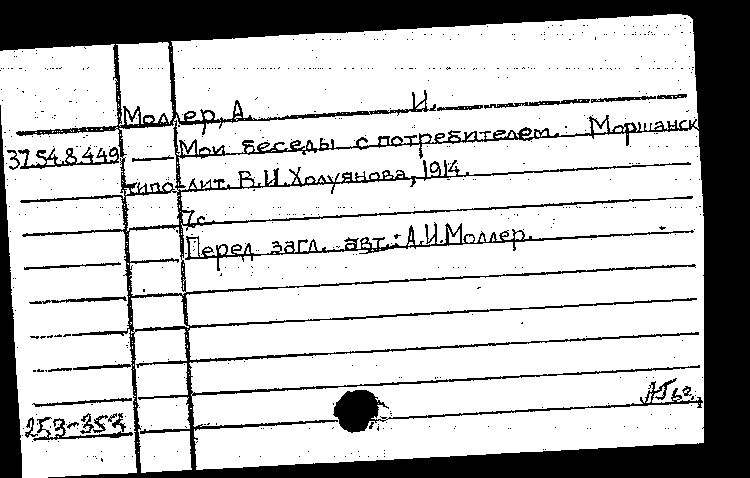 Моллер, А. И.
37.54.8.449 Мои беседы с потребителем. Моршанск
типо-лит. В.И.Холуянова, 1914.
7с.
Перед загл. авт.: А.И.Моллер.
253-353